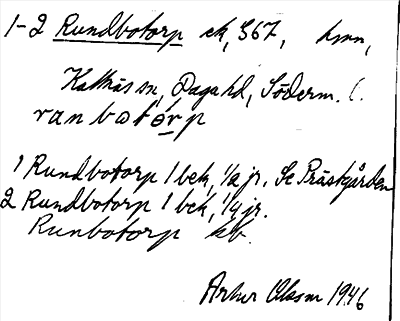 1-2 Rundbotorp ek, S67, hmn,
Kattnäs sn, Daga hd, Söderm. l.
ranbotorp
1 Rundbotorp 1 bek, 1/2 jr. Se Prästgården
2 Rundbotorp 1 bek, 1/4 jr.
Runbotorp kb.
Artur Olsson 1946